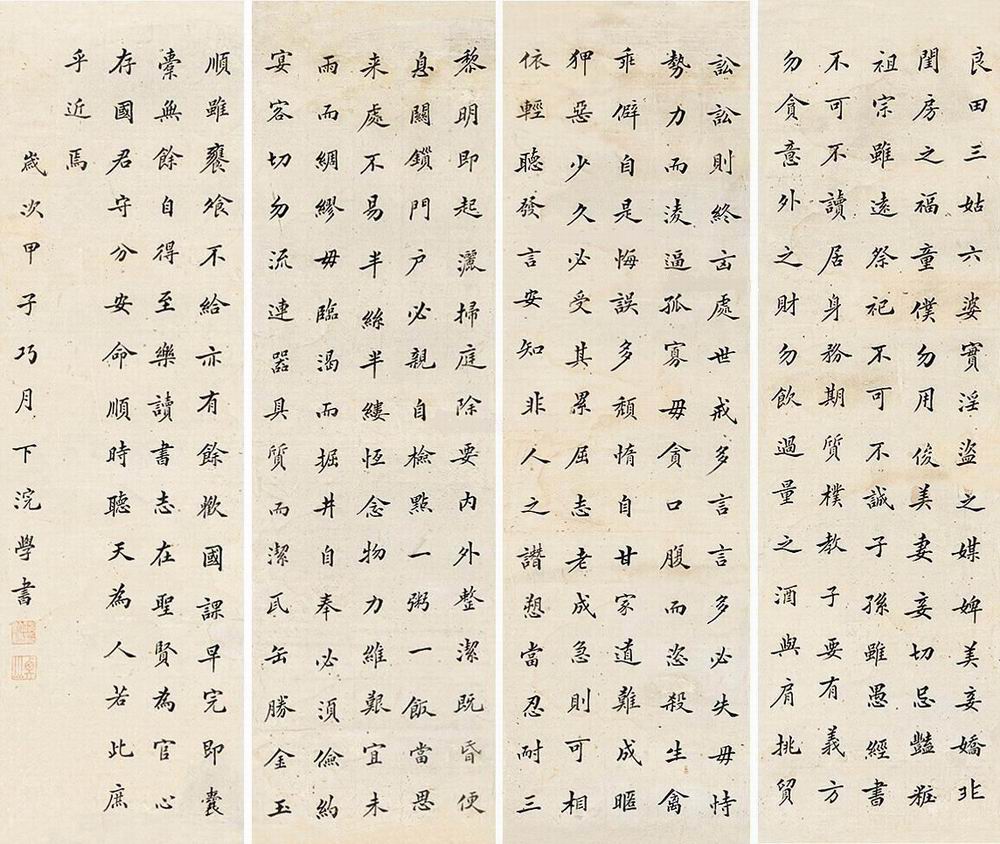 良田三姑六婆實淫盜之媒婢美妾嬌非
閨房之福童僕勿用俊美妻妾切忌豔粧
祖宗雖遠祭祀不可不誠子孫雖愚經書
不可不讀居身務期質樸教子要有義方
勿貪意外之財勿飲過量之酒與肩挑貿
訟訟則終凶處世戒多言言多必失毋恃
勢力而淩逼孤寡毋貪口腹而恣殺生禽
乖僻自是悔誤多頹惰自甘家道難成暱
狎惡少久必受其累屈志老成急則可相
依輕聽發言安知非人之譖愬當忍耐三
黎明即起灑掃庭除要内外整潔既昏便
息關鎖門户必親自檢點一粥一飯當思
来處不易半絲半縷恒念物力維艱宜未
雨而綢繆毋臨渴而掘井自奉必須儉約
宴客切勿流連器具質而潔瓦缶勝金玉
順雖饔飧不給亦有餘歡國課早完即囊
橐無餘自得至樂讀書志在聖賢為官心
存國君守分安命順時聽天為人若此庶
乎近焉
歲次甲子巧月下浣學書